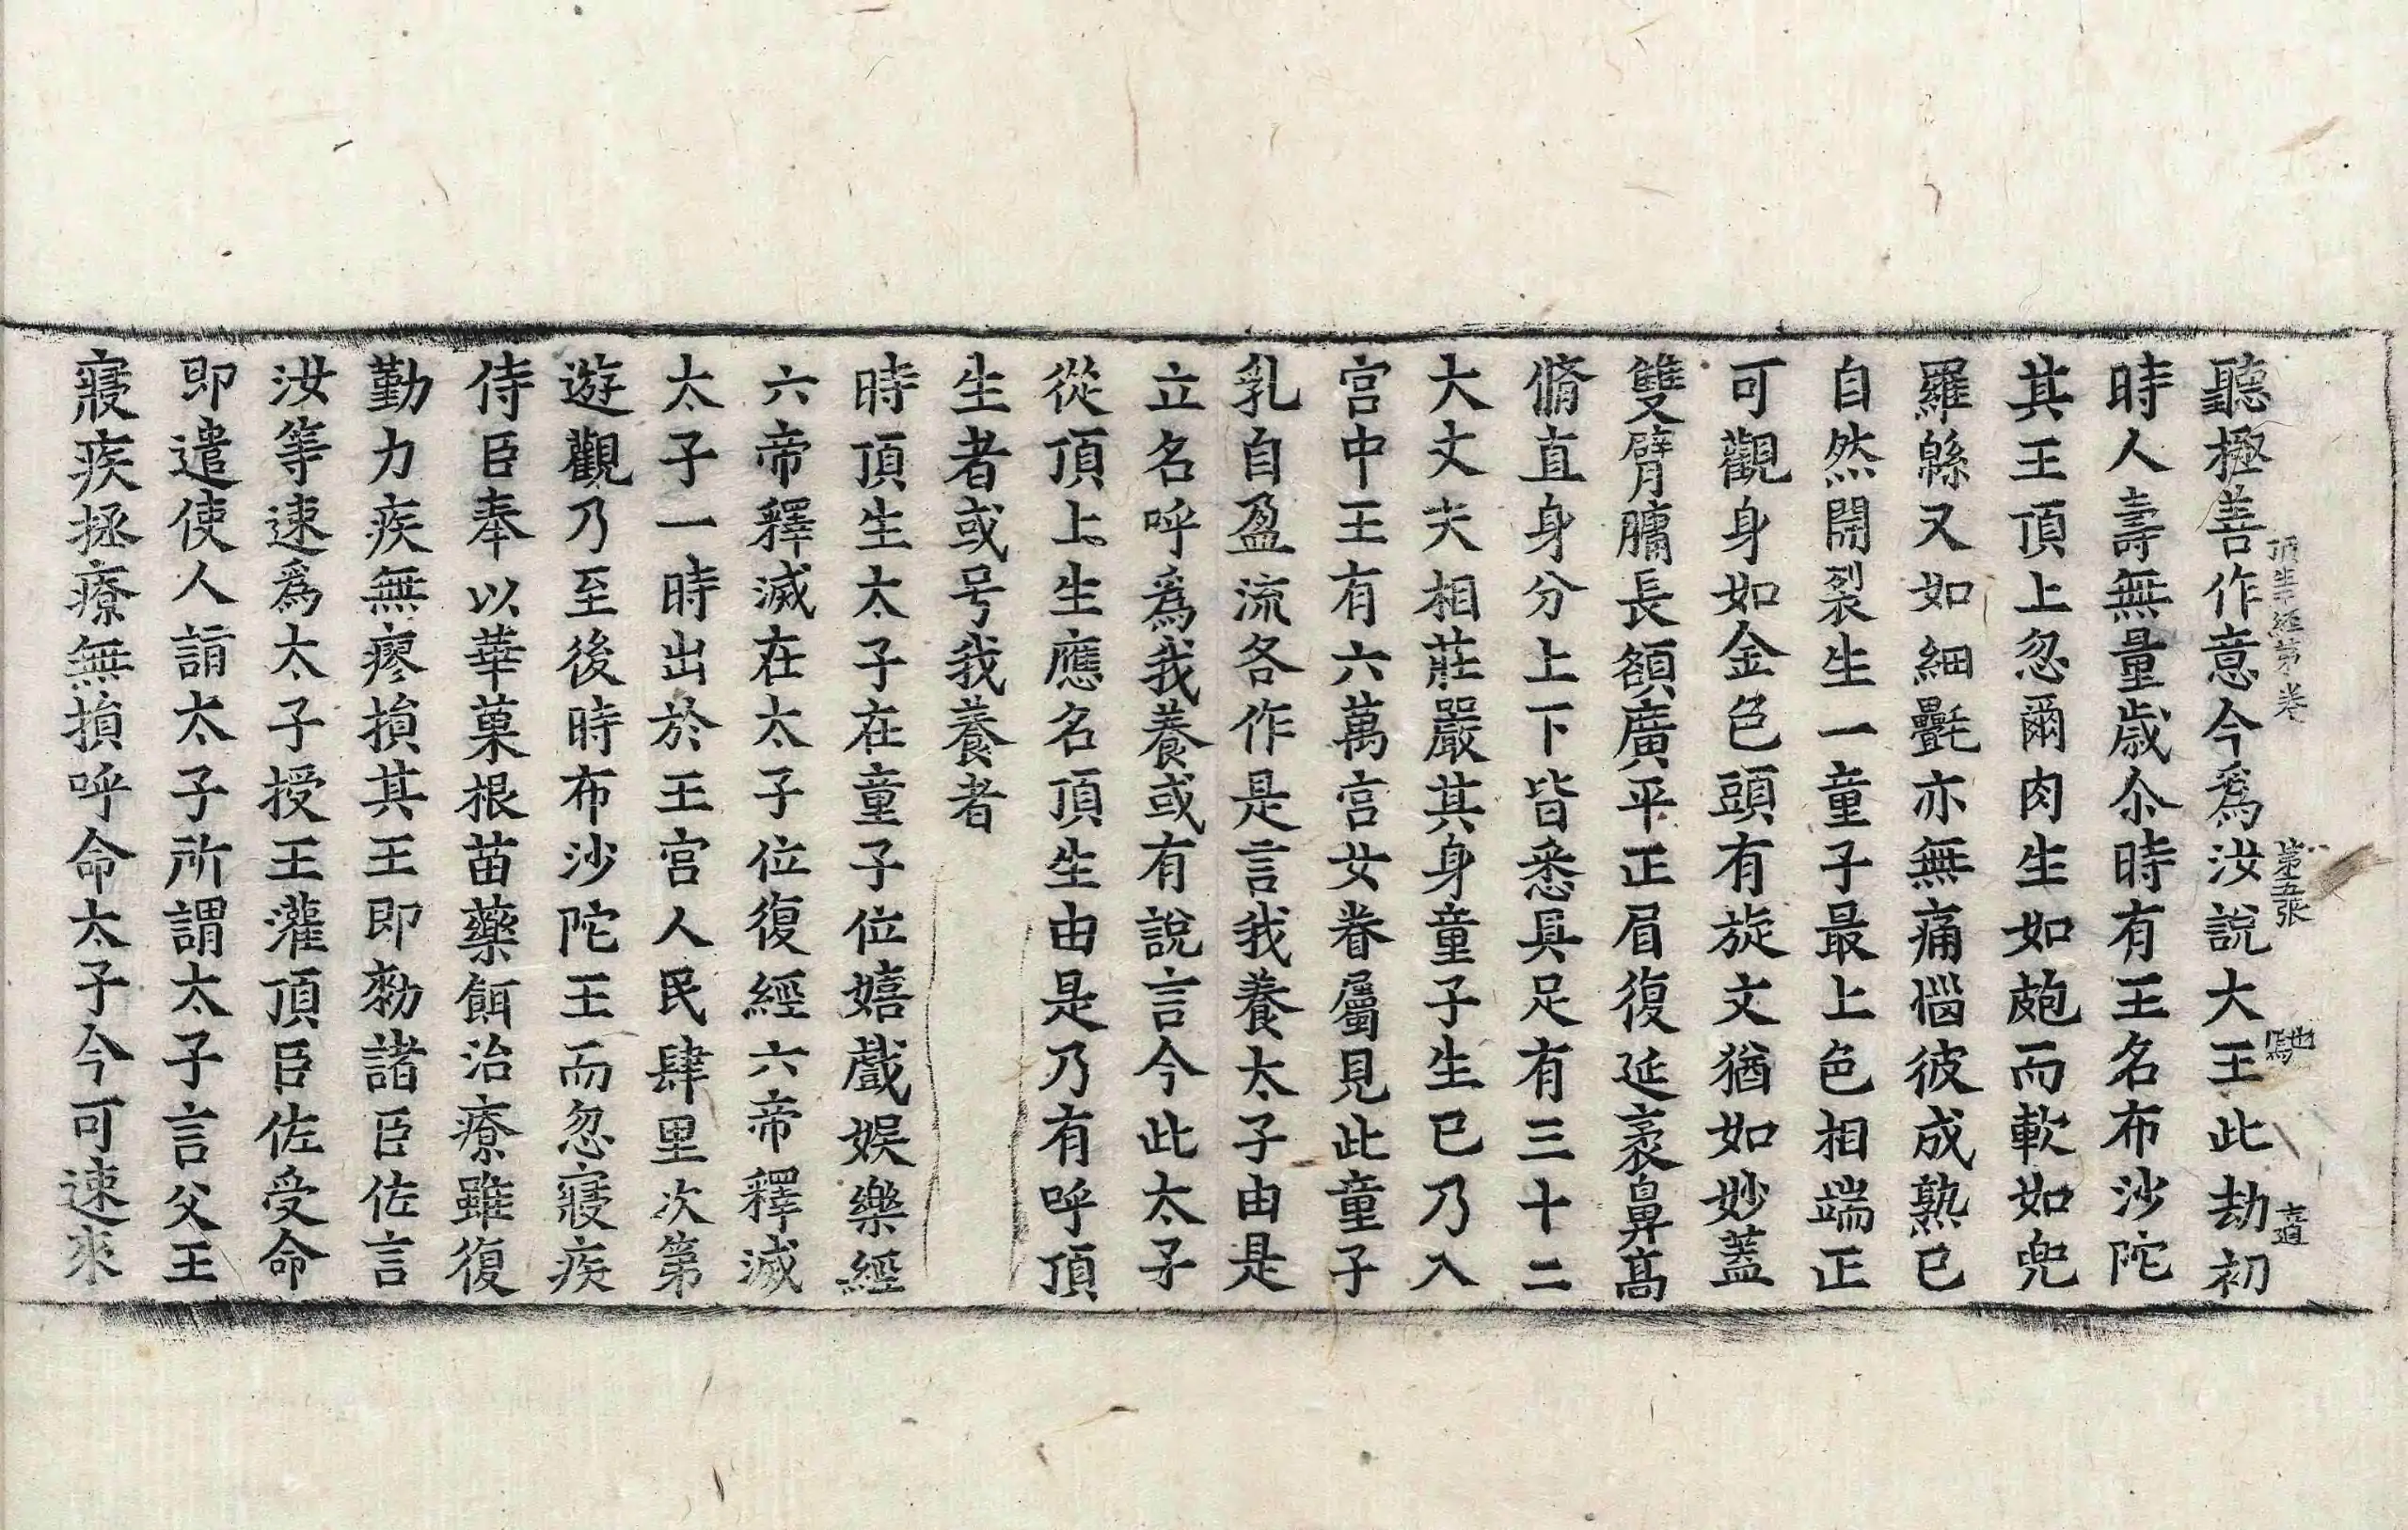 聽極善作意今爲汝說大王此劫初
時人壽無量歲尒時有王名布沙陀
其王頂上忽爾肉生如皰而軟如兜
羅緜又如細氎亦無痛惱彼成熟已
自然開裂生一童子最上色相端正
可觀身如金色頭有旋文猶如妙蓋
雙臂𦟛長額廣平正眉復延袤鼻髙
脩直身分上下皆悉具足有三十二
大丈夫相莊嚴其身童子生已乃入
宮中王有六萬宮女眷屬見此童子
乳自盈流各作是言我養太子由是
立名呼爲我養或有說言今此太子
從頂上生應名頂生由是乃有呼頂
生者或号我養者
時頂生太子在童子位嬉戲娛樂經
六帝釋滅在太子位復經六帝釋滅
太子一時出於王宮人民肆里次第
遊觀乃至後時布沙陀王而忽寢疾
侍臣奉以華菓根苗藥餌治療雖復
勤力疾無瘳損其王即勑諸臣佐言
汝等速爲太子授王灌頂臣佐受命
即遣使人詣太子所謂太子言父王
寢疾拯療無損呼命太子今可速來